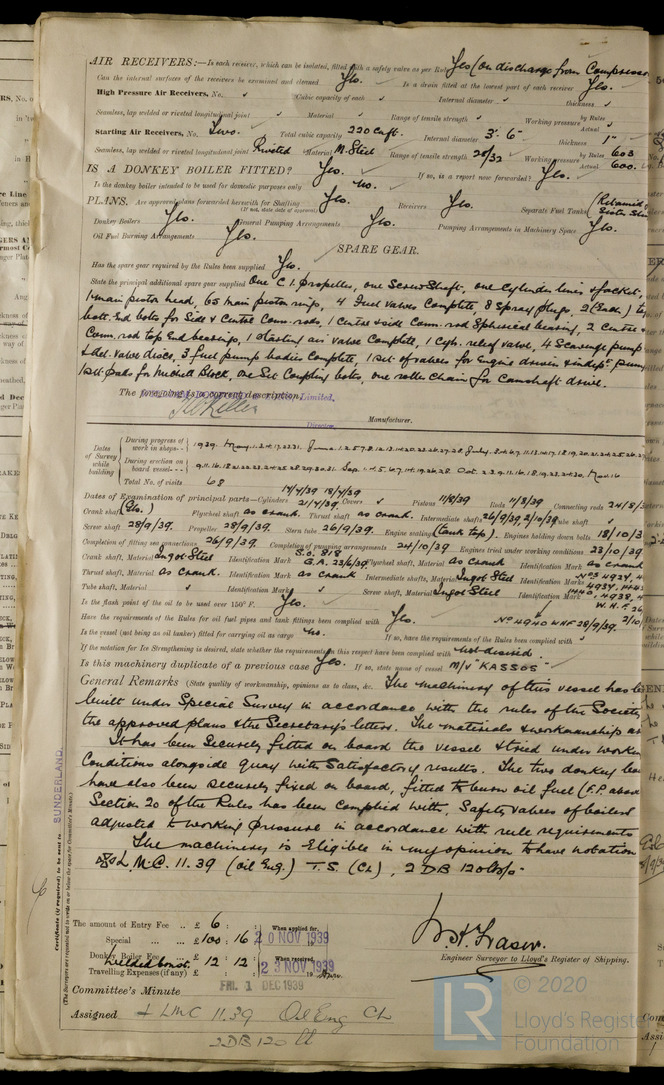 AIR RECEIVERS:—Is each receiver, which can be isolated, fitted with a safety valve as per Rule Yes (on discharge from Compressor
Can the internal surfaces of the receivers be examined and cleaned Yes. Is a drain fitted at the lowest part of each receiver Yes.
High Pressure Air Receivers, No. Cubic capacity of each Internal diameter thickness
Seamless, lap welded or riveted longitudinal joint Material Range of tensile strength Working pressure by Rules Actual
Starting Air Receivers, No. Two. Total cubic capacity 220 Cuft. Internal diameter 3'. 6" thickness 1"
Seamless, lap welded or riveted longitudinal joint Riveted Material M. Steel Range of tensile strength 28/32 Working pressure by Rules 603 Actual 600.
IS A DONKEY BOILER FITTED? Yes. If so, is a report now forwarded? Yes.
Is the donkey boiler intended to be used for domestic purposes only No.
PLANS. Are approved plans forwarded herewith for Shafting Yes. Receivers Yes. Separate Fuel Tanks (Retained Sister Ship
(If not, state date of approval)
Donkey Boilers Yes. General Pumping Arrangements Yes. Pumping Arrangements in Machinery Space Yes.
Oil Fuel Burning Arrangements Yes.
SPARE GEAR.
Has the spare gear required by the Rules been supplied Yes.
State the principal additional spare gear supplied One C.I. propeller, one Screw Shaft, one Cylinder liner & jacket,
1 main piston head, 65 main piston rings, 4 Fuel Valves Complete, 8 Spray plugs, 2 (Each)
bott. End bolts for Side & Centre Conn. rods, 1 Centre & side Conn. rod Spherical bearing, 2 Centre &
Conn. rod top End bearings, 1 starting air valve Complete, 1 Cyl. relief valve, 4 Scavenge pump
& del. valve discs, 3 fuel pump bodies Complete, 1 Set of valves for Engine driven & indept. pump
1 Set pads for Michell Block, one Set Coupling bolts, one roller chain for Camshaft drive.
The foregoing is a correct description, Limited.
Director.
Manufacturer.
Dates of Survey while building
During progress of work in shops-- 1939. May. 1.2.4.17.22.31. June
During erection on board vessel--- Sep. Oct. Nov. 16
Total No. of visits 68
Dates of Examination of principal parts—Cylinders 14/4/39 18/4/39 21/4/39 Covers Pistons 11/8/39 Rods 11/8/39 Connecting rods 24/8/3
Crank shaft (Glo.) Flywheel shaft as crank. Thrust shaft as crank. Intermediate shafts 26/9/39, 2/10/39 Tube shaft
Screw shaft 28/9/39. Propeller 28/9/39. Stern tube 26/9/39. Engine seating (Tank top). Engines holding down bolts 18/10/3
Completion of fitting sea connections 26/9/39. Completion of pumping arrangements 24/10/39. Engines tried under working conditions 23/10/39
Crank shaft, Material Ingot Steel Identification Mark S.O. 818 G.A. 23/6/39 Flywheel shaft, Material as crank Identification Mark as crank
Thrust shaft, Material as crank. Identification Mark as crank Intermediate shafts, Material Ingot Steel Identification Marks Nos 4934,
Tube shaft, Material Identification Mark Screw shaft, Material Ingot Steel Identification Mark 4938, W.H.F.
Is the flash point of the oil to be used over 150° F. Yes.
Have the requirements of the Rules for oil fuel pipes and tank fittings been complied with Yes. No 4940 WHF 28/9/39.
Is the vessel (not being an oil tanker) fitted for carrying oil as cargo No. If so, have the requirements of the Rules been complied with
If the notation for Ice Strengthening is desired, state whether the requirements in this respect have been complied with Not desired.
Is this machinery duplicate of a previous case Yes. If so, state name of vessel M/V "KASSOS"
General Remarks (State quality of workmanship, opinions as to class, &c. The machinery of this vessel has be
built under Special Survey in accordance with the rules of the Society
the approved plans & the Secretary's letters. The materials & workmanship are
It has been Securely fitted on board the vessel & tried under working
Conditions alongside quay with Satisfactory results. The two donkey boi
have also been securely fixed on board, fitted to burn oil fuel (F.P. above
Section 20 of the Rules has been complied with, Safety Valves of boilers
adjusted to working pressure in accordance with rule requirements
The machinery is Eligible in my opinion to have notation
L.M.C. 11.39 (oil Eng.) T.S. (CL), 2 DB 120 lbs.
SUNDERLAND.
Certificate (if required) to be sent to
(The Surveyors are requested not to write on or below the space for Committee's Minute.)
The amount of Entry Fee .. £ 6 : : When applied for,
Special ... ... £ 100 : 16 20 NOV 1939
Donkey Boiler Fee £ 12 : 12 When received,
Travelling Expenses (if any) £ : : 23 NOV 1939
W. H. Fraser.
Engineer Surveyor to Lloyd's Register of Shipping.
Committee's Minute FRI. 1 DEC 1939
Assigned + LMC 11.39 Oil Eng CL
2DB 120 lb
LR
© 2020
Lloyd's Register
Foundation